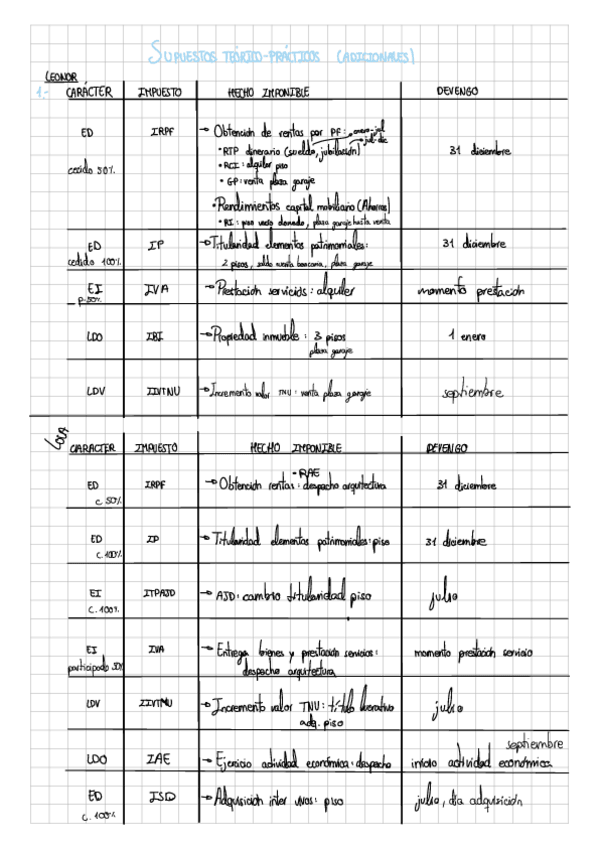 SUPUESTOS TEÓRICO-PRÁCTICOS (ADICIONALES)
LEONOR
1.- CARÁCTER IMPUESTO HECHO IMPONIBLE DEVENGO
ED IRPF → Obtención de rentas por PF: enero-jul
jul-dic
cedido 50% • RTP dinerario (sueldo, jubilación) 31 diciembre
• RCI: alquiler piso
• GP: venta plaza garaje
• Rendimientos capital mobiliario (Ahorros)
• RI: piso vacío donado, plaza garaje hasta venta
ED IP → Titularidad elementos patrimoniales: 31 diciembre
cedido 100% 2 pisos, saldo cuenta bancaria, plaza garaje
EI IVA → Prestación servicios: alquiler momento prestación
p.50%
LDO IBI → Propiedad inmueble: 3 pisos 1 enero
plaza garaje
LDV IIVTNU → Incremento valor TNU: venta plaza garaje septiembre
LOLA
CARÁCTER IMPUESTO HECHO IMPONIBLE DEVENGO
• RAE
ED IRPF → Obtención rentas: despacho arquitectura 31 diciembre
c. 50%
ED IP → Titularidad elementos patrimoniales: piso 31 diciembre
c. 100%
EI ITPAJD → AJD: cambio titularidad piso julio
C. 100%
EI IVA → Entrega bienes y prestación servicios: momento prestación servicio
participado 50% despacho arquitectura
LDV IIVTMU → Incremento valor TNU: título lucrativo julio
adq. piso
septiembre
LDO IAE → Ejercicio actividad económica: despacho inicio actividad económica
ED ISD → Adquisición inter vivos: piso julio, día adquisición
c. 100%